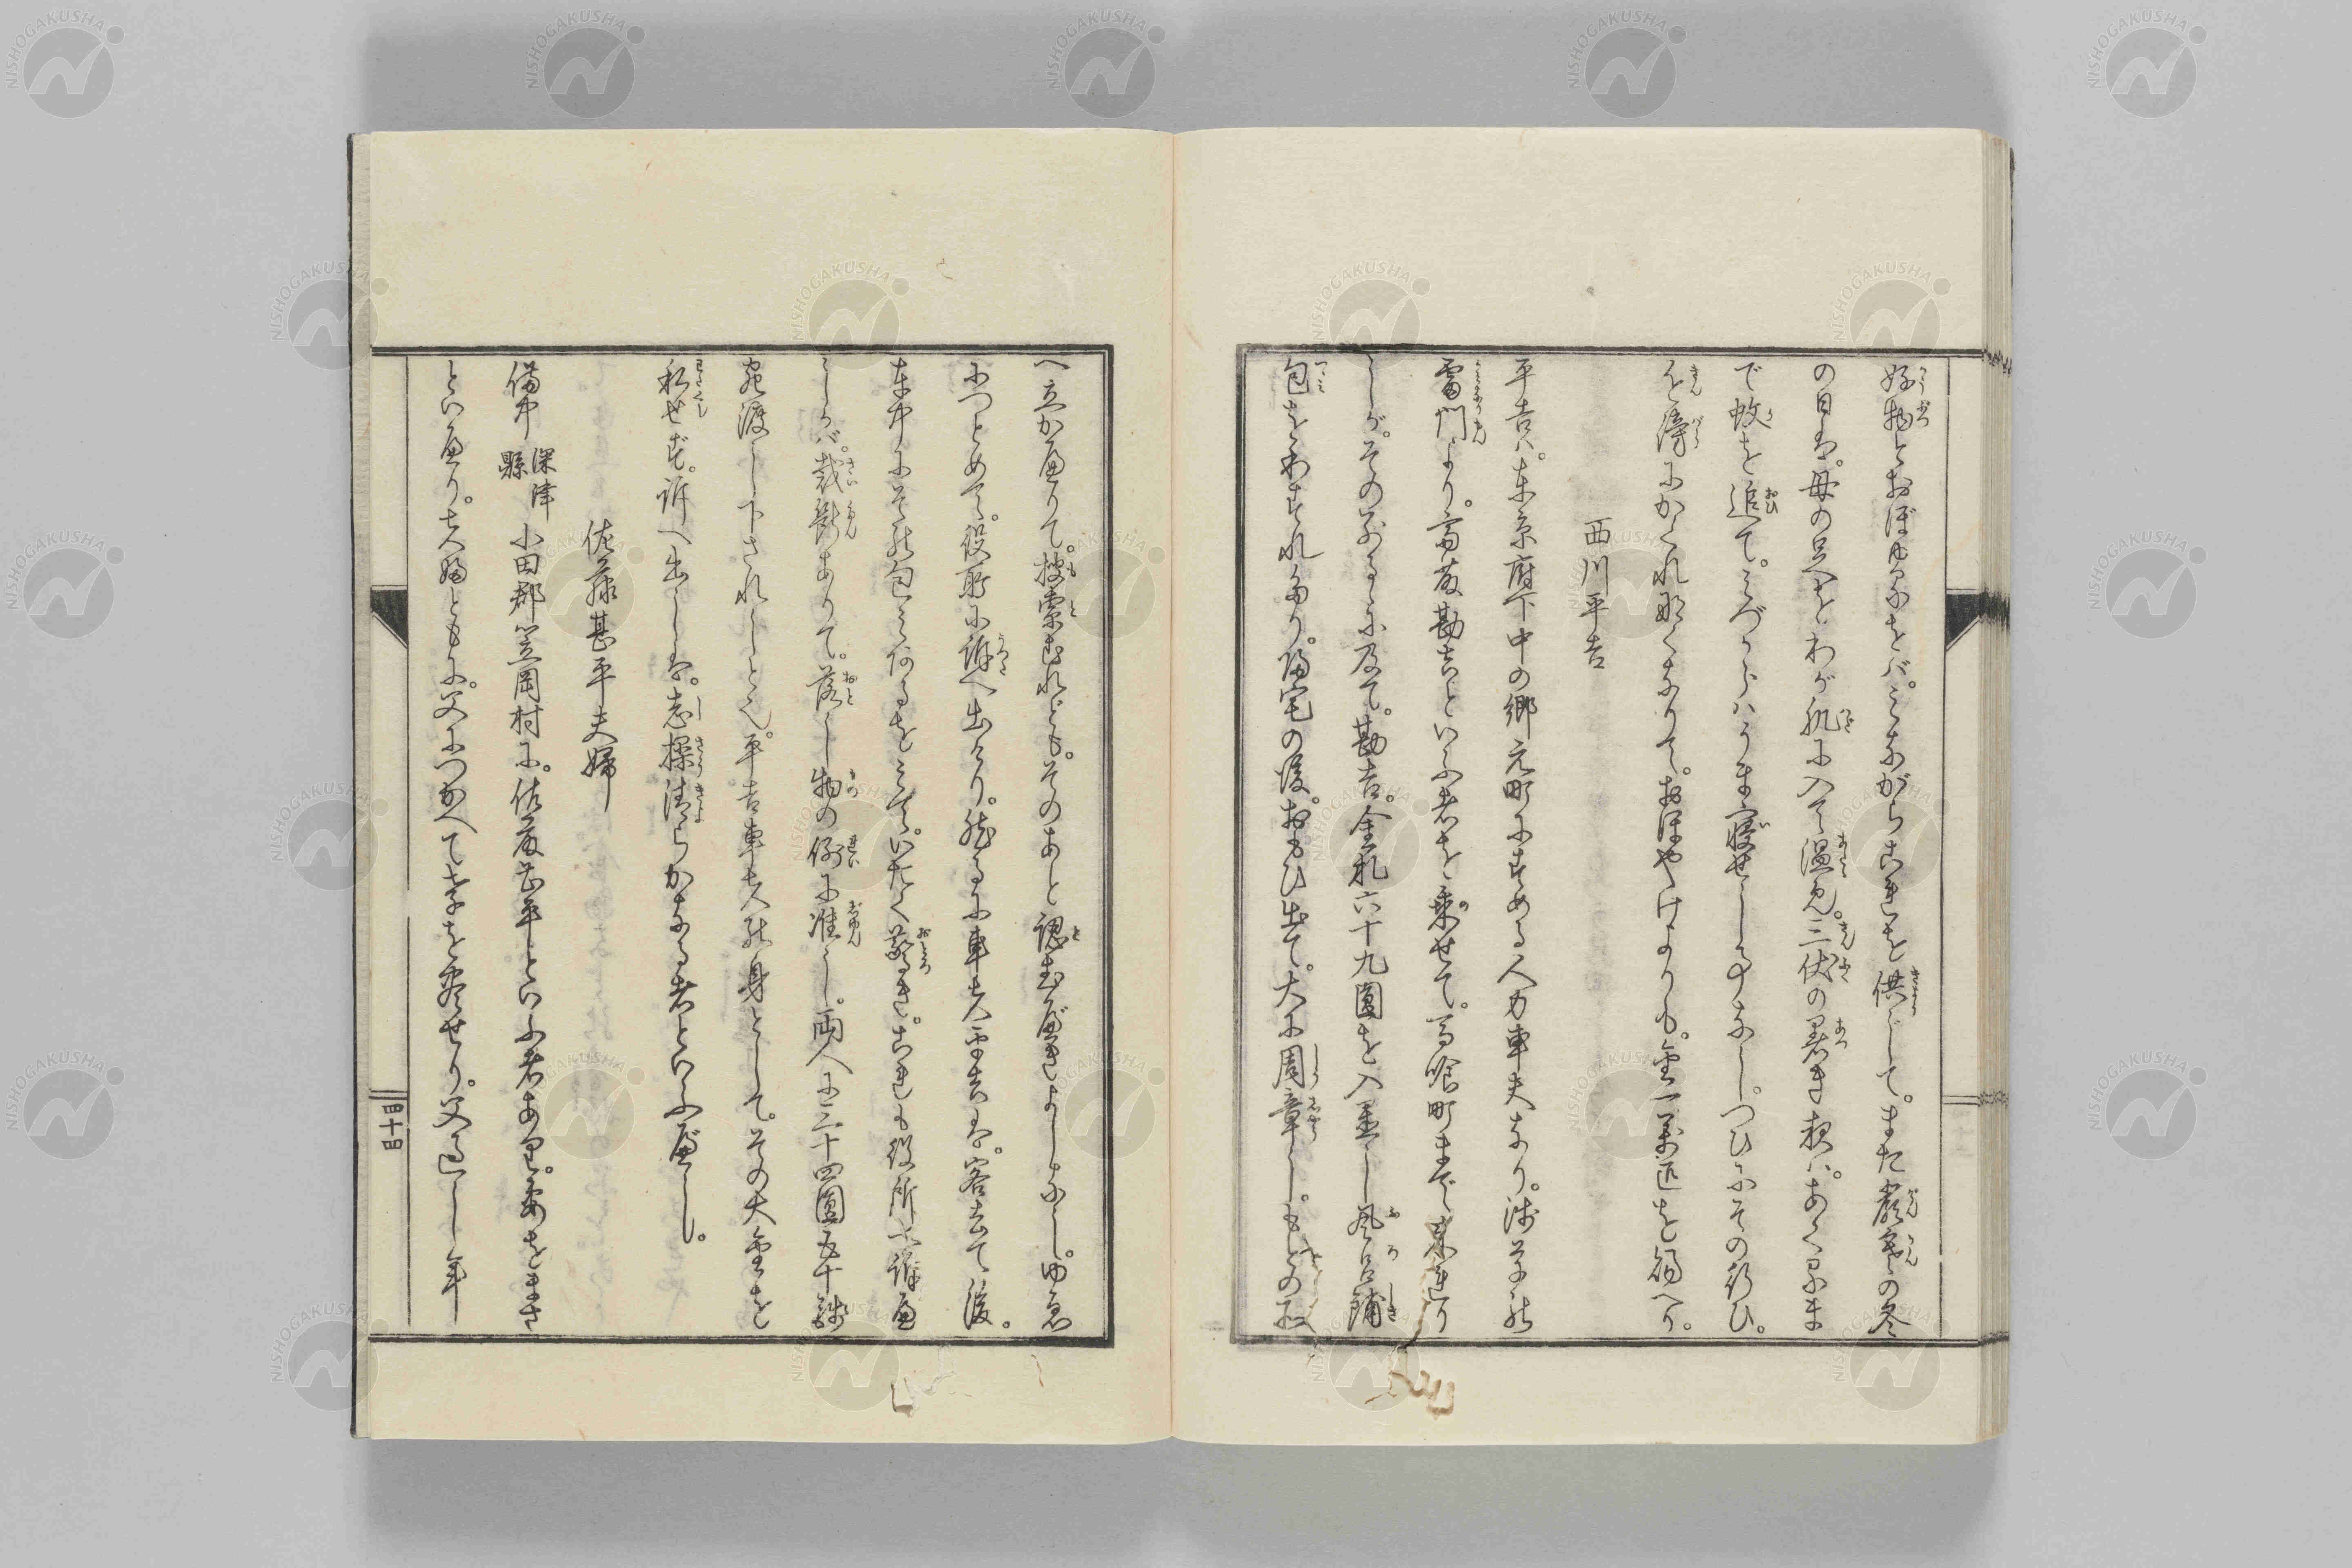 好物とおぼゆるをバ。みながらこれを供じて。また嚴寒の冬
の日は。母の足をわが肌に入て溫め。三伏の暑き夜ハ。あくるま
で蚊を追て。みづからハうま寢せし事なし。つひにその行ひ。
を濤にかくれなくなりて。おほやけよりも。金一萬疋を賜へり。
西川平吉
平吉ハ。東京府下中の郷元町にすめる人力車夫なり。浅草の
雷門より。斎藤勘吉といふ者を乗せて。馬喰町まで来れり
しが。その別るゝに及て。勘吉。金札六十九圓を入置し風呂鋪
包をわすれたり。帰宅の後。おもひ出て。大に周章し。もとの
へ立かへりて。捜索すれども。そのあと認むべきよしなし。ゆゑ
につとめて。役所に訴へ出たり。然るに車夫平吉は。客去て後。
車中にその包みあるをみて。いたく驚き。これも役所に訴へ
しかバ。裁断ありて。落し物の例に准じ。両人に三十四圓五十錢
宛渡し下されしとぞ。平吉車夫の身として。その大金を
私せず。訴へ出しは。志操清らかなる者といふべし。
佐藤甚平夫婦
備中 深津縣 小田郡笠岡村に。佐藤甚平といふ者あり。妻をまさ
といへり。夫婦ともに。父につかへて孝を尽せり。父過し年
四十四
NISHOGAKUSHA